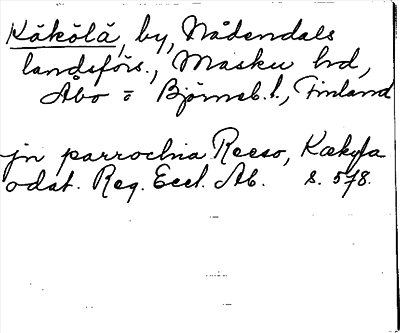 Käkölä, by, Nådendals
landsförs., Masku hd,
Åbo o Björneb. l., Finland
jn parrochia Reeso, Kækyla
odat. Reg. Eccl. Ab. s. 578.